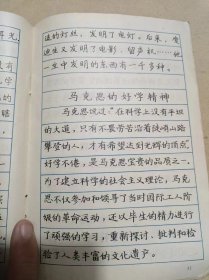 迹的灯丝，发明了电灯。后来，爱
迪生又发明了电影、留声机……他
一生中发明的东西有一千多种。
马克思的好学精神
马克思说过：“在科学上没有平坦
的大道，只有不畏劳苦沿着陡峭山路
攀登的人，才有希望达到光辉的顶点”
好学不倦，是马克思宝贵的品质之一。
为了建立科学的社会主义理论，马克思
不仅参加和领导了当时国际工人阶
级的革命运动，还以毕生的精力进行
了顽强的学习，重新探讨、批判和检
验了人类丰富的文化遗产。